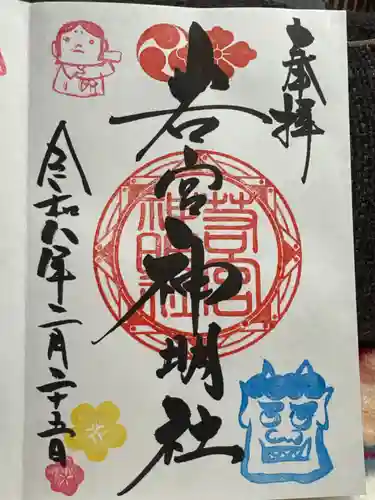 奉拝
若宮神明社
若宮神明社
令和八年二月二十五日